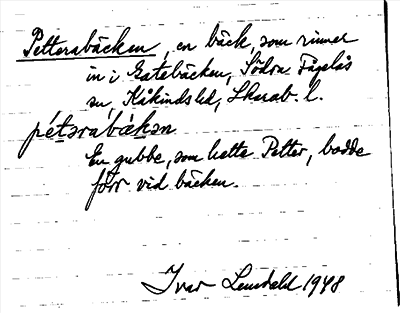 Pettersbäcken, en bäck, som rinner
in i Gatebäcken, Södra Fågelås
sn, Kåkinds hd, Skarab. l.
pétərabäkən
En gubbe, som hette Petter, bodde
förr vid bäcken.
Ivar 1948